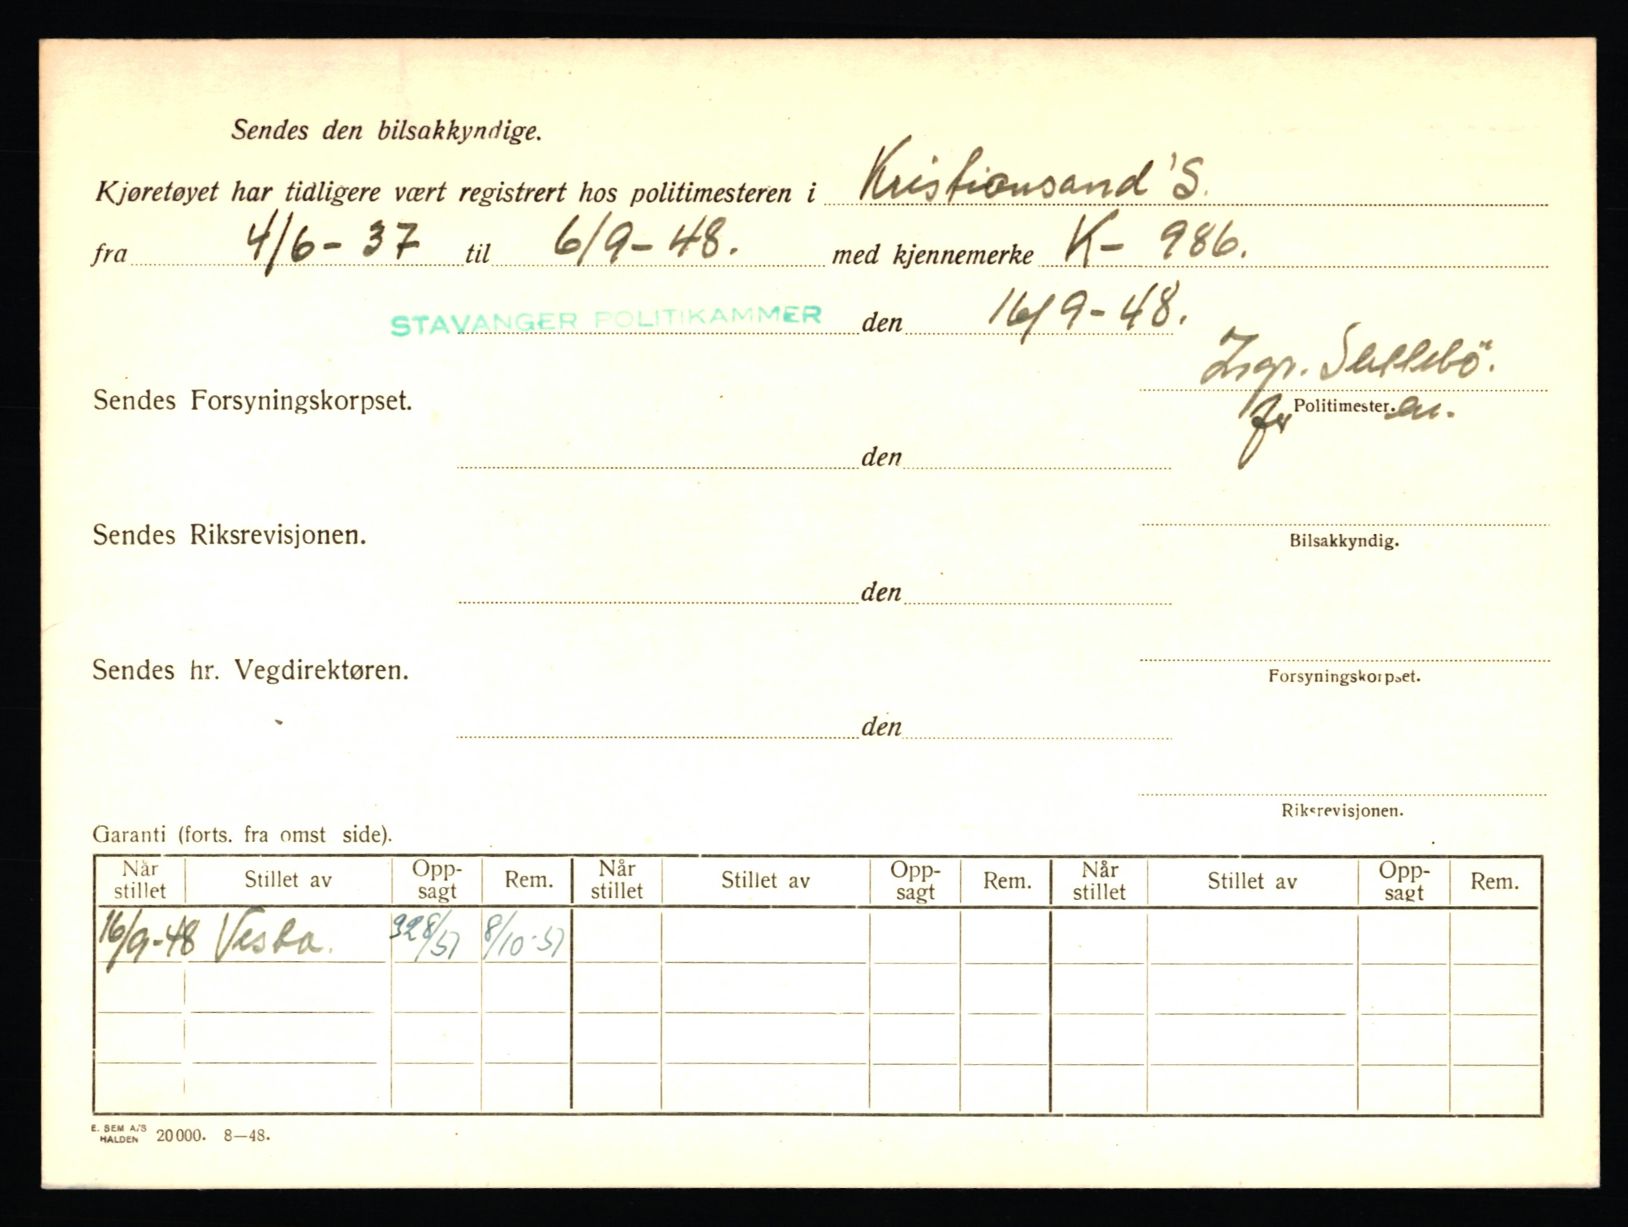 Sendes den bilsakkyndige.
Kjøretøyet har tidligere vært registrert hos politimesteren i Kristiansand 'S.
fra 4/6-37 til 6/9-48. med kjennemerke K- 986.
STAVANGER POLITIKAMMER den 16/9-48.
Sendes Forsyningskorpset.
fr Politimesteren.
den
Sendes Riksrevisjonen.
Bilsakkyndig.
den
Sendes hr. Vegdirektøren.
Forsyningskorpset.
den
Riksrevisjonen.
Garanti (forts. fra omst side).
Når stillet Stillet av Opp-sagt Rem. Når stillet Stillet av Opp-sagt Rem. Når stillet Stillet av Opp-sagt Rem.
16/9-48 Vesta. 8/10-51
E. SEM A/S HALDEN 20000. 8—48.